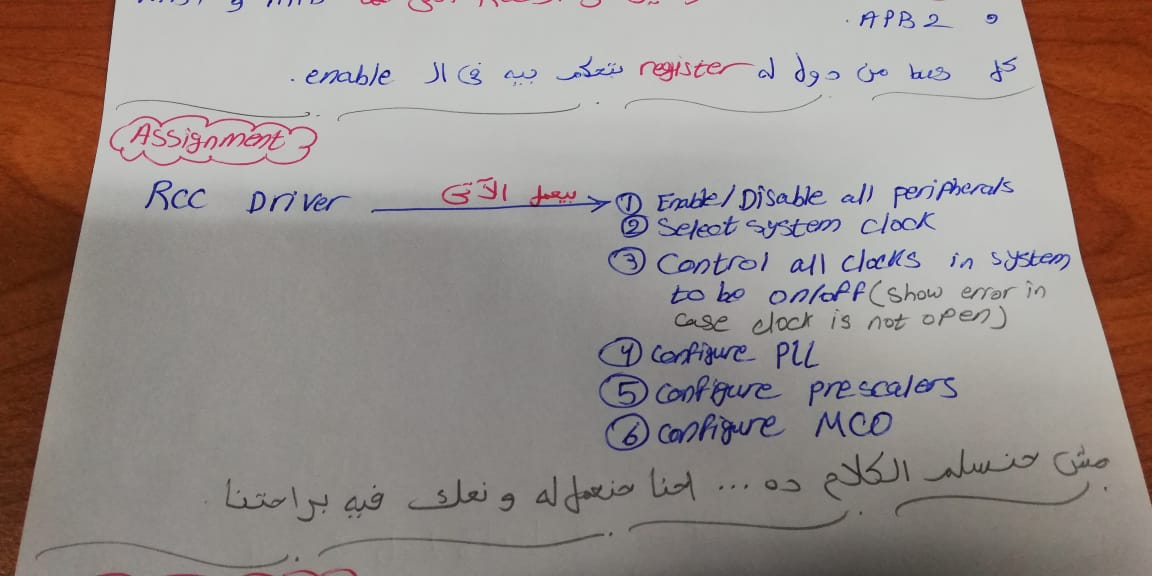 و APB2.
كل دول من دول له register نتحكم بيه فى ال enable.
Assignment
RCC Driver بيعمل الآتى
① Enable/Disable all peripherals
② Select system clock
③ Control all clocks in system
to be on/off (show error in
case clock is not open)
④ Configure PLL
⑤ Configure prescalers
⑥ Configure MCO
مش هنسلم الكلام ده... احنا هنعمله و نعك فيه براحتنا.